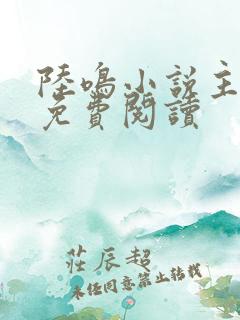 陸鳴小說主
免費閱讀
莊辰超
未經同意禁止轉載